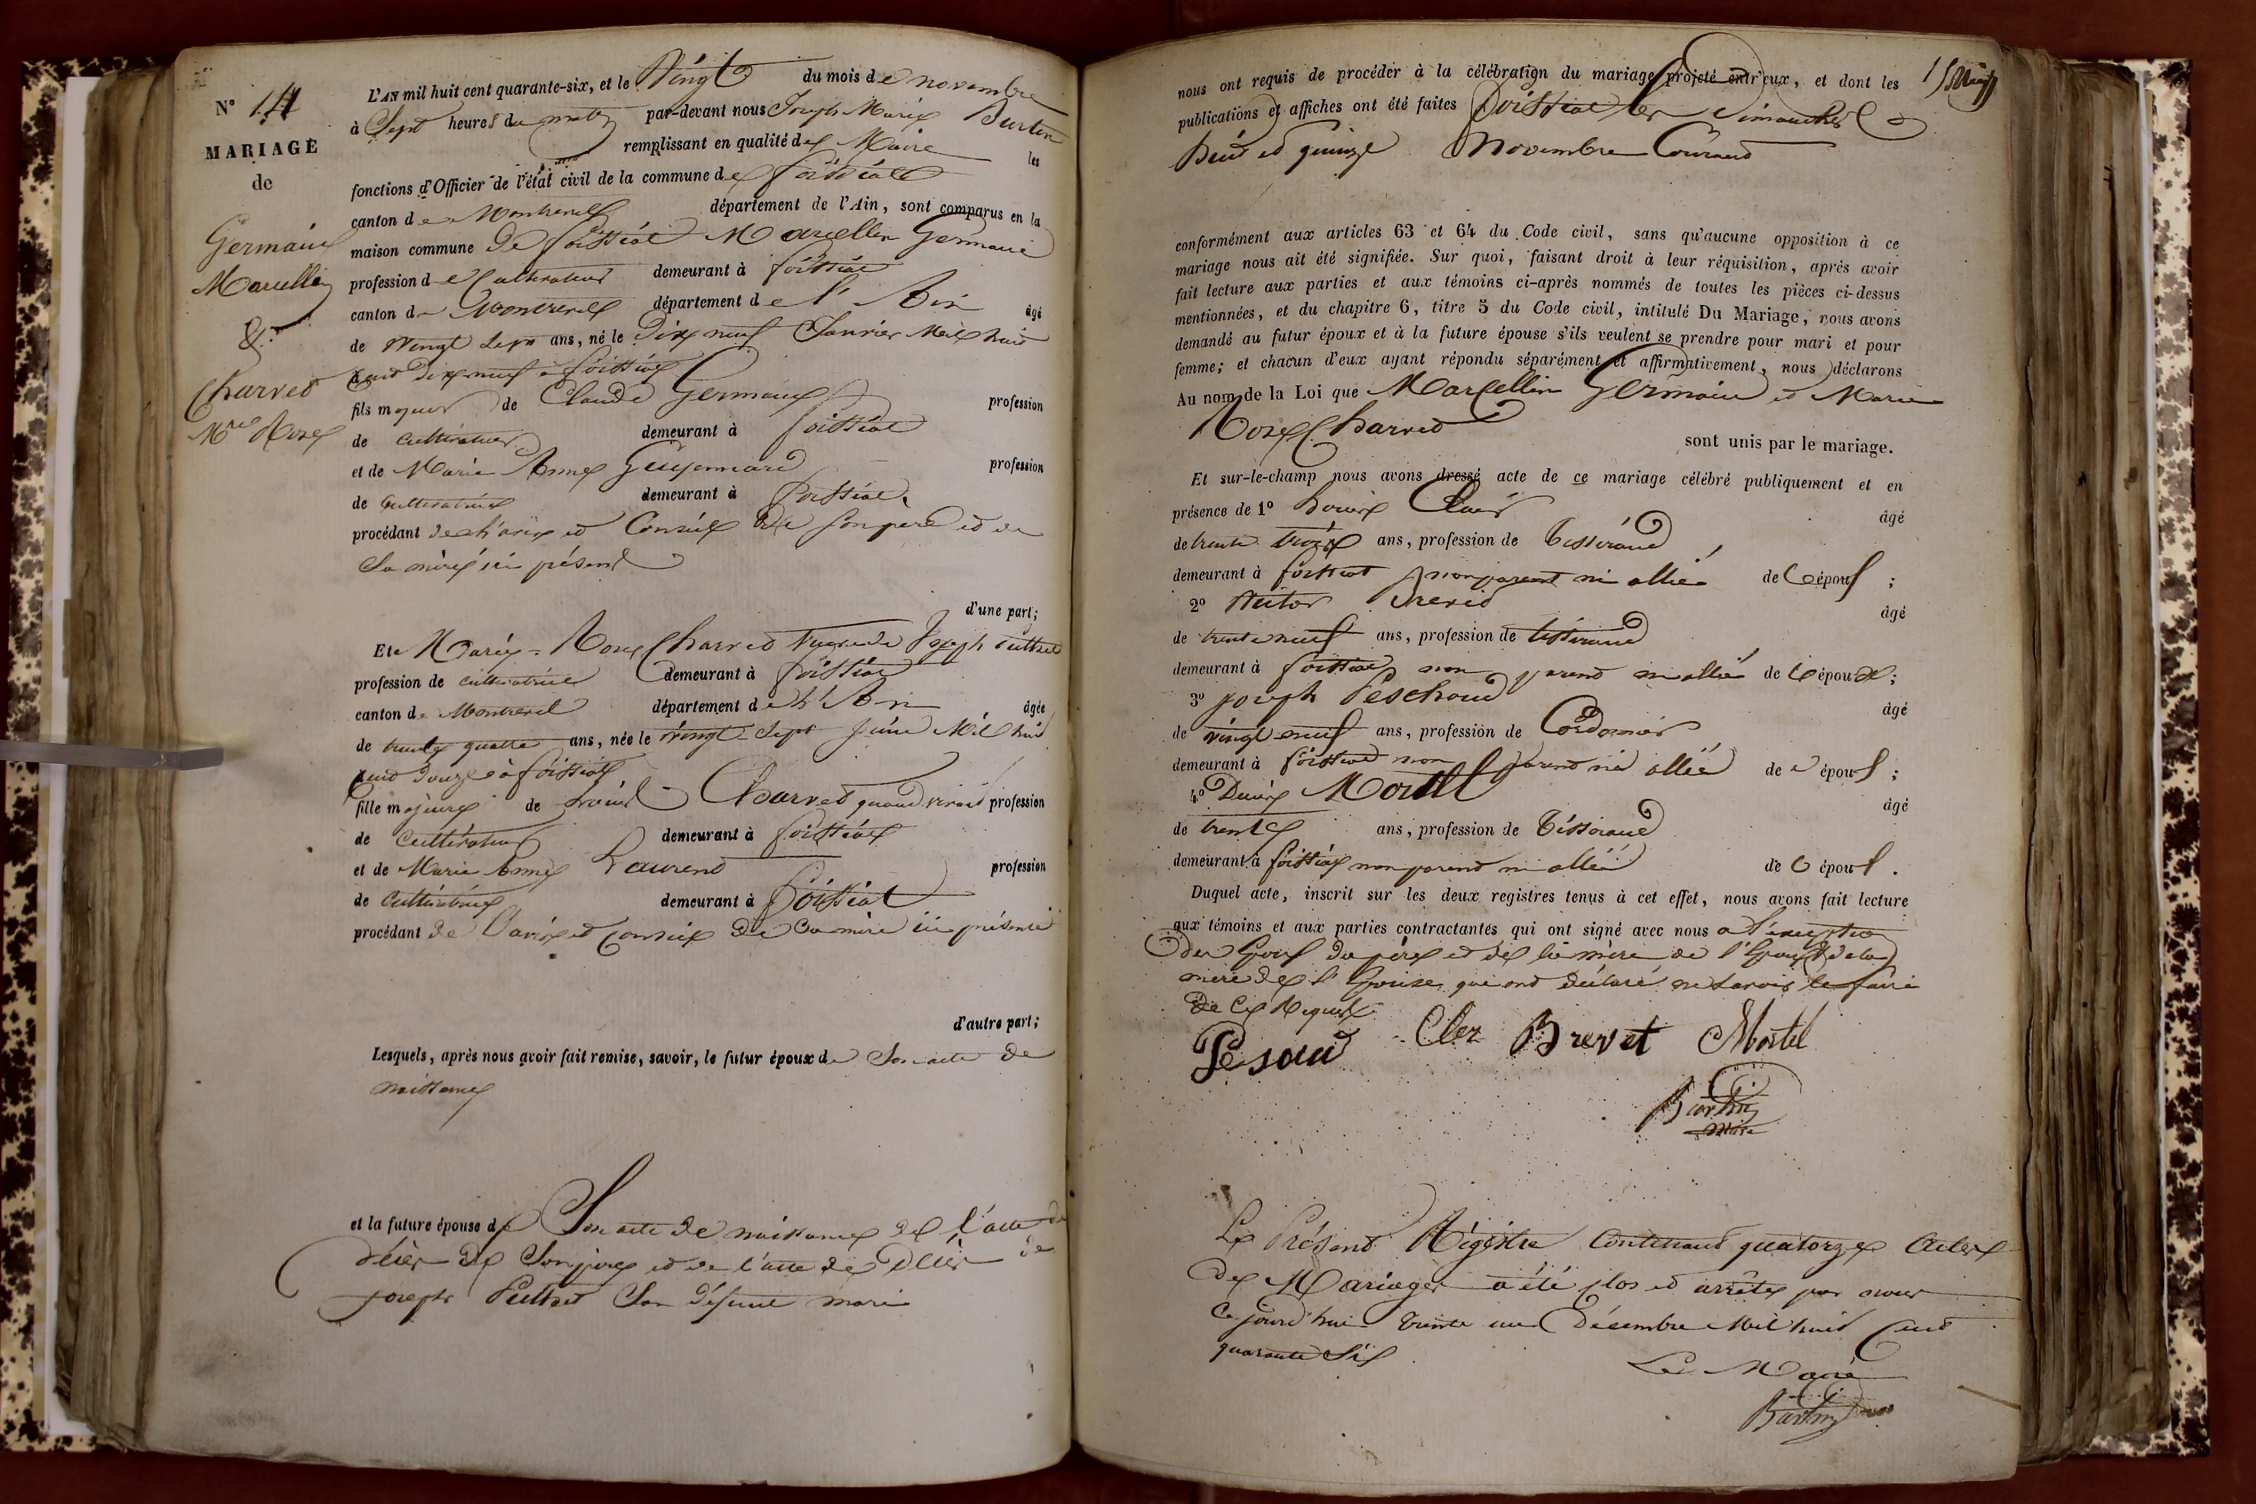 N° 14
MARIAGE
de
Germain
Marcellin
&
Charved
Mie Rose
L'AN mil huit cent quarante-six, et le Vingt du mois de novembre
à Sept heures du matin par-devant nous Joseph Marie
remplissant en qualité de Maire les
fonctions d'Officier de l'état civil de la commune de foissiat
canton de Montrevel département de l'Ain, sont comparus en la
maison commune de foissiat Marcellin Germain
profession de Cultivateur demeurant à foissiat
canton de Montrevel département de l'Ain âgé
de Vingt Sept ans, né le Dix neuf Janvier Mil huit
Cent Dix neuf à foissiat
fils majeur de Claude Germain profession
de Cultivateur demeurant à foissiat
et de Marie Anne profession
de Cultivatrice demeurant à foissiat
procédant de l'avis et Conseil de Son père et de
Sa mère ici présent
d'une part;
Et Marie Rose Charved Veuve de Joseph
profession de cultivatrice demeurant à foissiat
canton de Montrevel département de l'Ain âgée
de trente quatre ans, née le Vingt Sept Juin Mil huit
Cent Douze à foissiat
fille majeure de Charved quand vivait profession
de Cultivateur demeurant à foissiat
et de Marie Anne Laurend profession
de Cultivatrice demeurant à foissiat
procédant de l'avis et Conseil de Sa mère ici présente
d'autre part;
Lesquels, après nous avoir fait remise, savoir, le futur époux de Son acte de
naissance
et la future épouse de Son acte de naissance de l'acte de
décès de Son père et de l'acte de Décès de
joseph Son défunt mari
nous ont requis de procéder à la célébration du mariage projeté entr'eux, et dont les
publications et affiches ont été faites à foissiat les Dimanches
huit et quinze Novembre Courant
conformément aux articles 63 et 64 du Code civil, sans qu'aucune opposition à ce
mariage nous ait été signifiée. Sur quoi, faisant droit à leur réquisition, après avoir
fait lecture aux parties et aux témoins ci-après nommés de toutes les pièces ci-dessus
mentionnées, et du chapitre 6, titre 5 du Code civil, intitulé Du Mariage, nous avons
demandé au futur époux et à la future épouse s'ils veulent se prendre pour mari et pour
femme; et chacun d'eux ayant répondu séparément et affirmativement, nous déclarons
Au nom de la Loi que Marcellin Germain et Marie
Rose Charved
sont unis par le mariage.
Et sur-le-champ nous avons dressé acte de ce mariage célébré publiquement et en
présence de 1° Louis âgé
de trente trois ans, profession de tisserand
demeurant à foissiat non parent ni allié de l'époux ;
2° âgé
de trente neuf ans, profession de tisserand
demeurant à foissiat non parend ni allié de l'époux ;
3° joseph Peschoud âgé
de vingt neuf ans, profession de Cordonnier
demeurant à foissiat non parend ni allié de l'époux ;
4° Denis Mortel âgé
de trente ans, profession de tisserand
demeurant à foissiat non parend ni allié de l'époux .
Duquel acte, inscrit sur les deux registres tenus à cet effet, nous avons fait lecture
aux témoins et aux parties contractantes qui ont signé avec nous à l'exception
des époux du père et de la mère de l'Epoux & de la
mère de l'Epouse qui ont déclaré ne Savoir le faire
de Ce Requis
Pesaud Cler Brevet Mortel
Maire
Le Présent Régistre Contenant quatorze Actes
de Mariage a été clos et arrêté par nous
Ce jourd'hui trente un Décembre Mil huit Cent
quarante Six
Le Maire